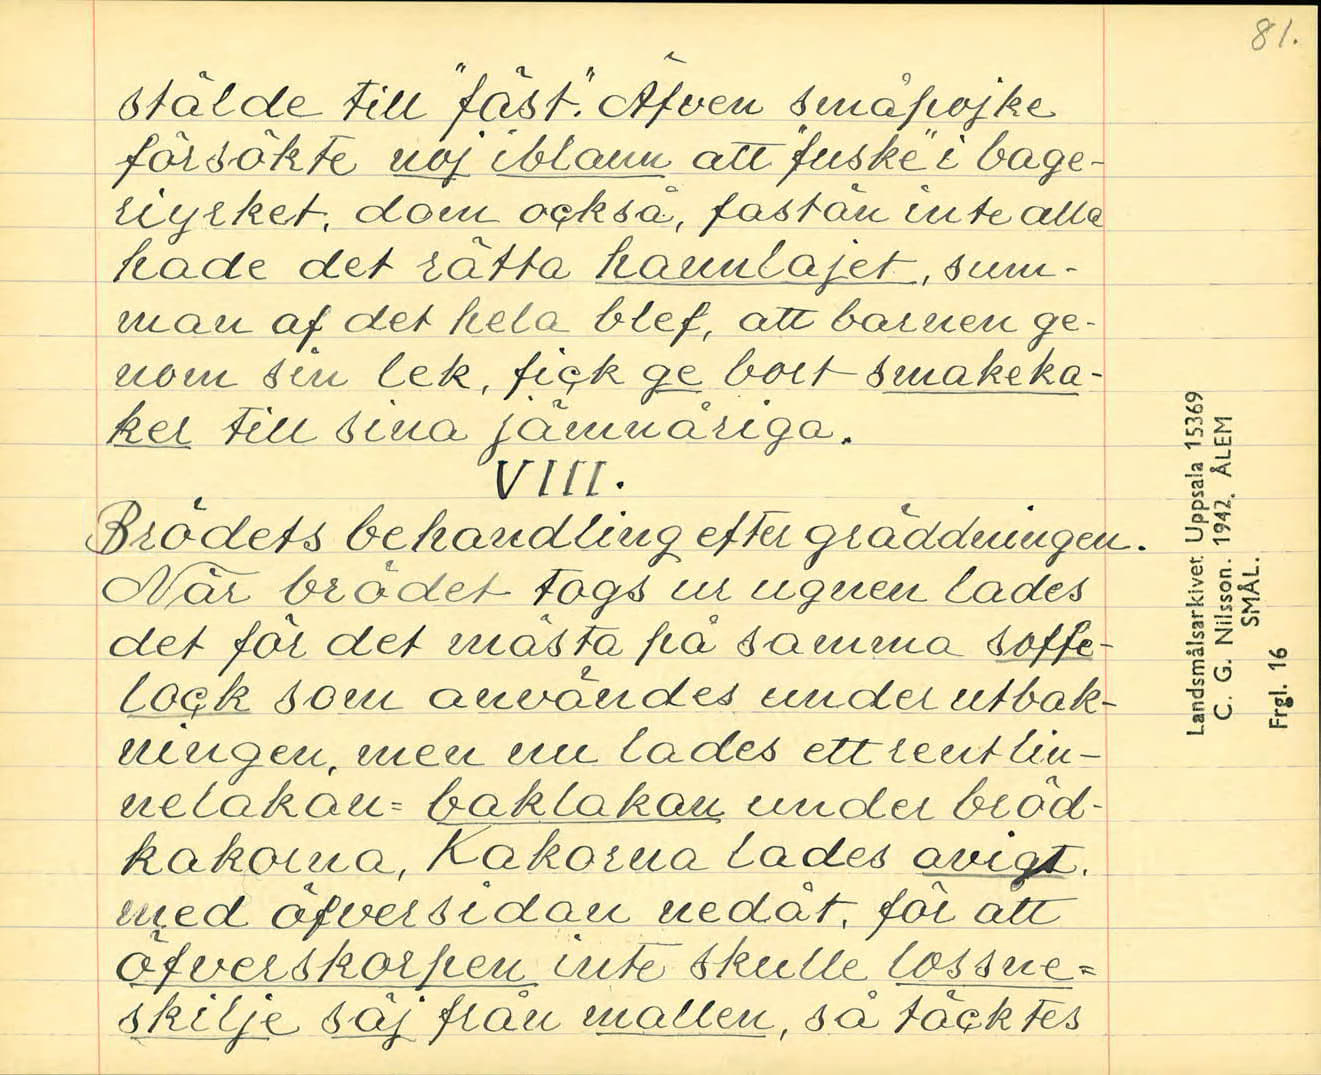 81.
stälde till "fäst". Äfven småpojke
försökte noj iblann att "fuske" i bage-
riyrket, dom också, fastän inte alla
hade det rätta hannlajet, sum-
man af det hela blef, att barnen ge-
nom sin lek, fick ge bort smakeka-
ker till sina jämnåriga.
VIII.
Brödets behandling efter gräddningen.
När brödet togs ur ugnen lades
det för det mästa på samma soffe-
lock som användes under utbak-
ningen, men nu lades ett rent lin-
nelakan = baklakan under bröd-
kakorna, Kakorna lades avigt,
med öfversidan nedåt, för att
öfverskorpen inte skulle lossne =
skilje säj från mallen, så täcktes
Landsmålsarkivet Uppsala 15369
C. G. Nilsson. 1942. ÅLEM
SMÅL.
Frgl. 16